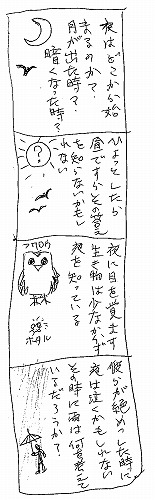 夜はどこから始
まるのか？
月が出た時？
暗くなった時？
ひょっとしたら
昼ですらその答え
を知らないかもし
れない
夜に目を覚ます
生き物は少なからず
夜を知っている
フクロウ
ホタル
彼らが絶めっした時に
夜は泣くかもしれない
その時に海は何を考えて
いるだろうか？